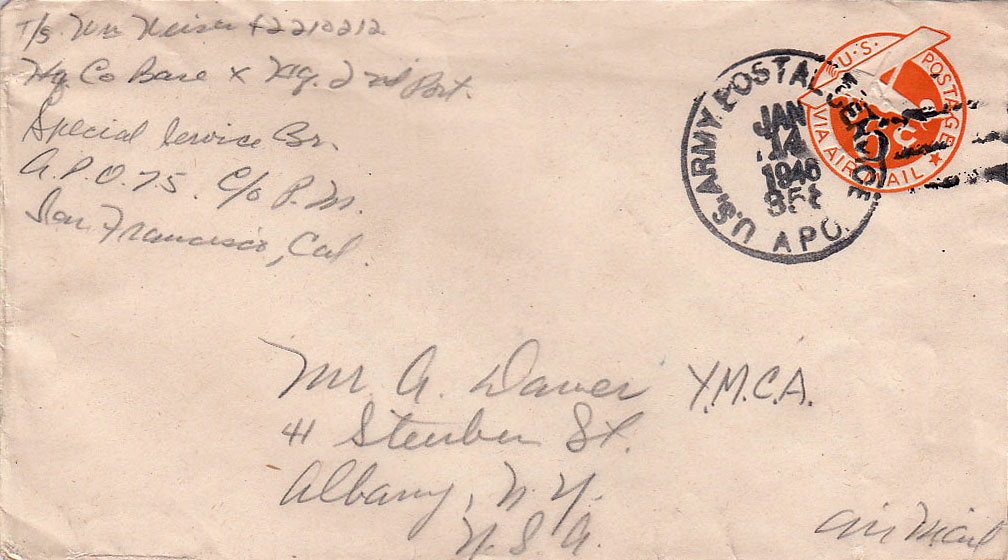 T/5 Wm Neiser 42210212
Hq. Co Base X
Special Service Br.
A.P.O. 75 c/o P.M.
San Francisco, Cal.
U.S. ARMY POSTAL SERVICE
JAN
14
1946
A.P.O.
U.S. POSTAGE
6 C
VIA AIR MAIL
Mr A. Y.M.C.A.
41 Steuben St.
Albany, N.Y.
U.S.A.
Air Mail